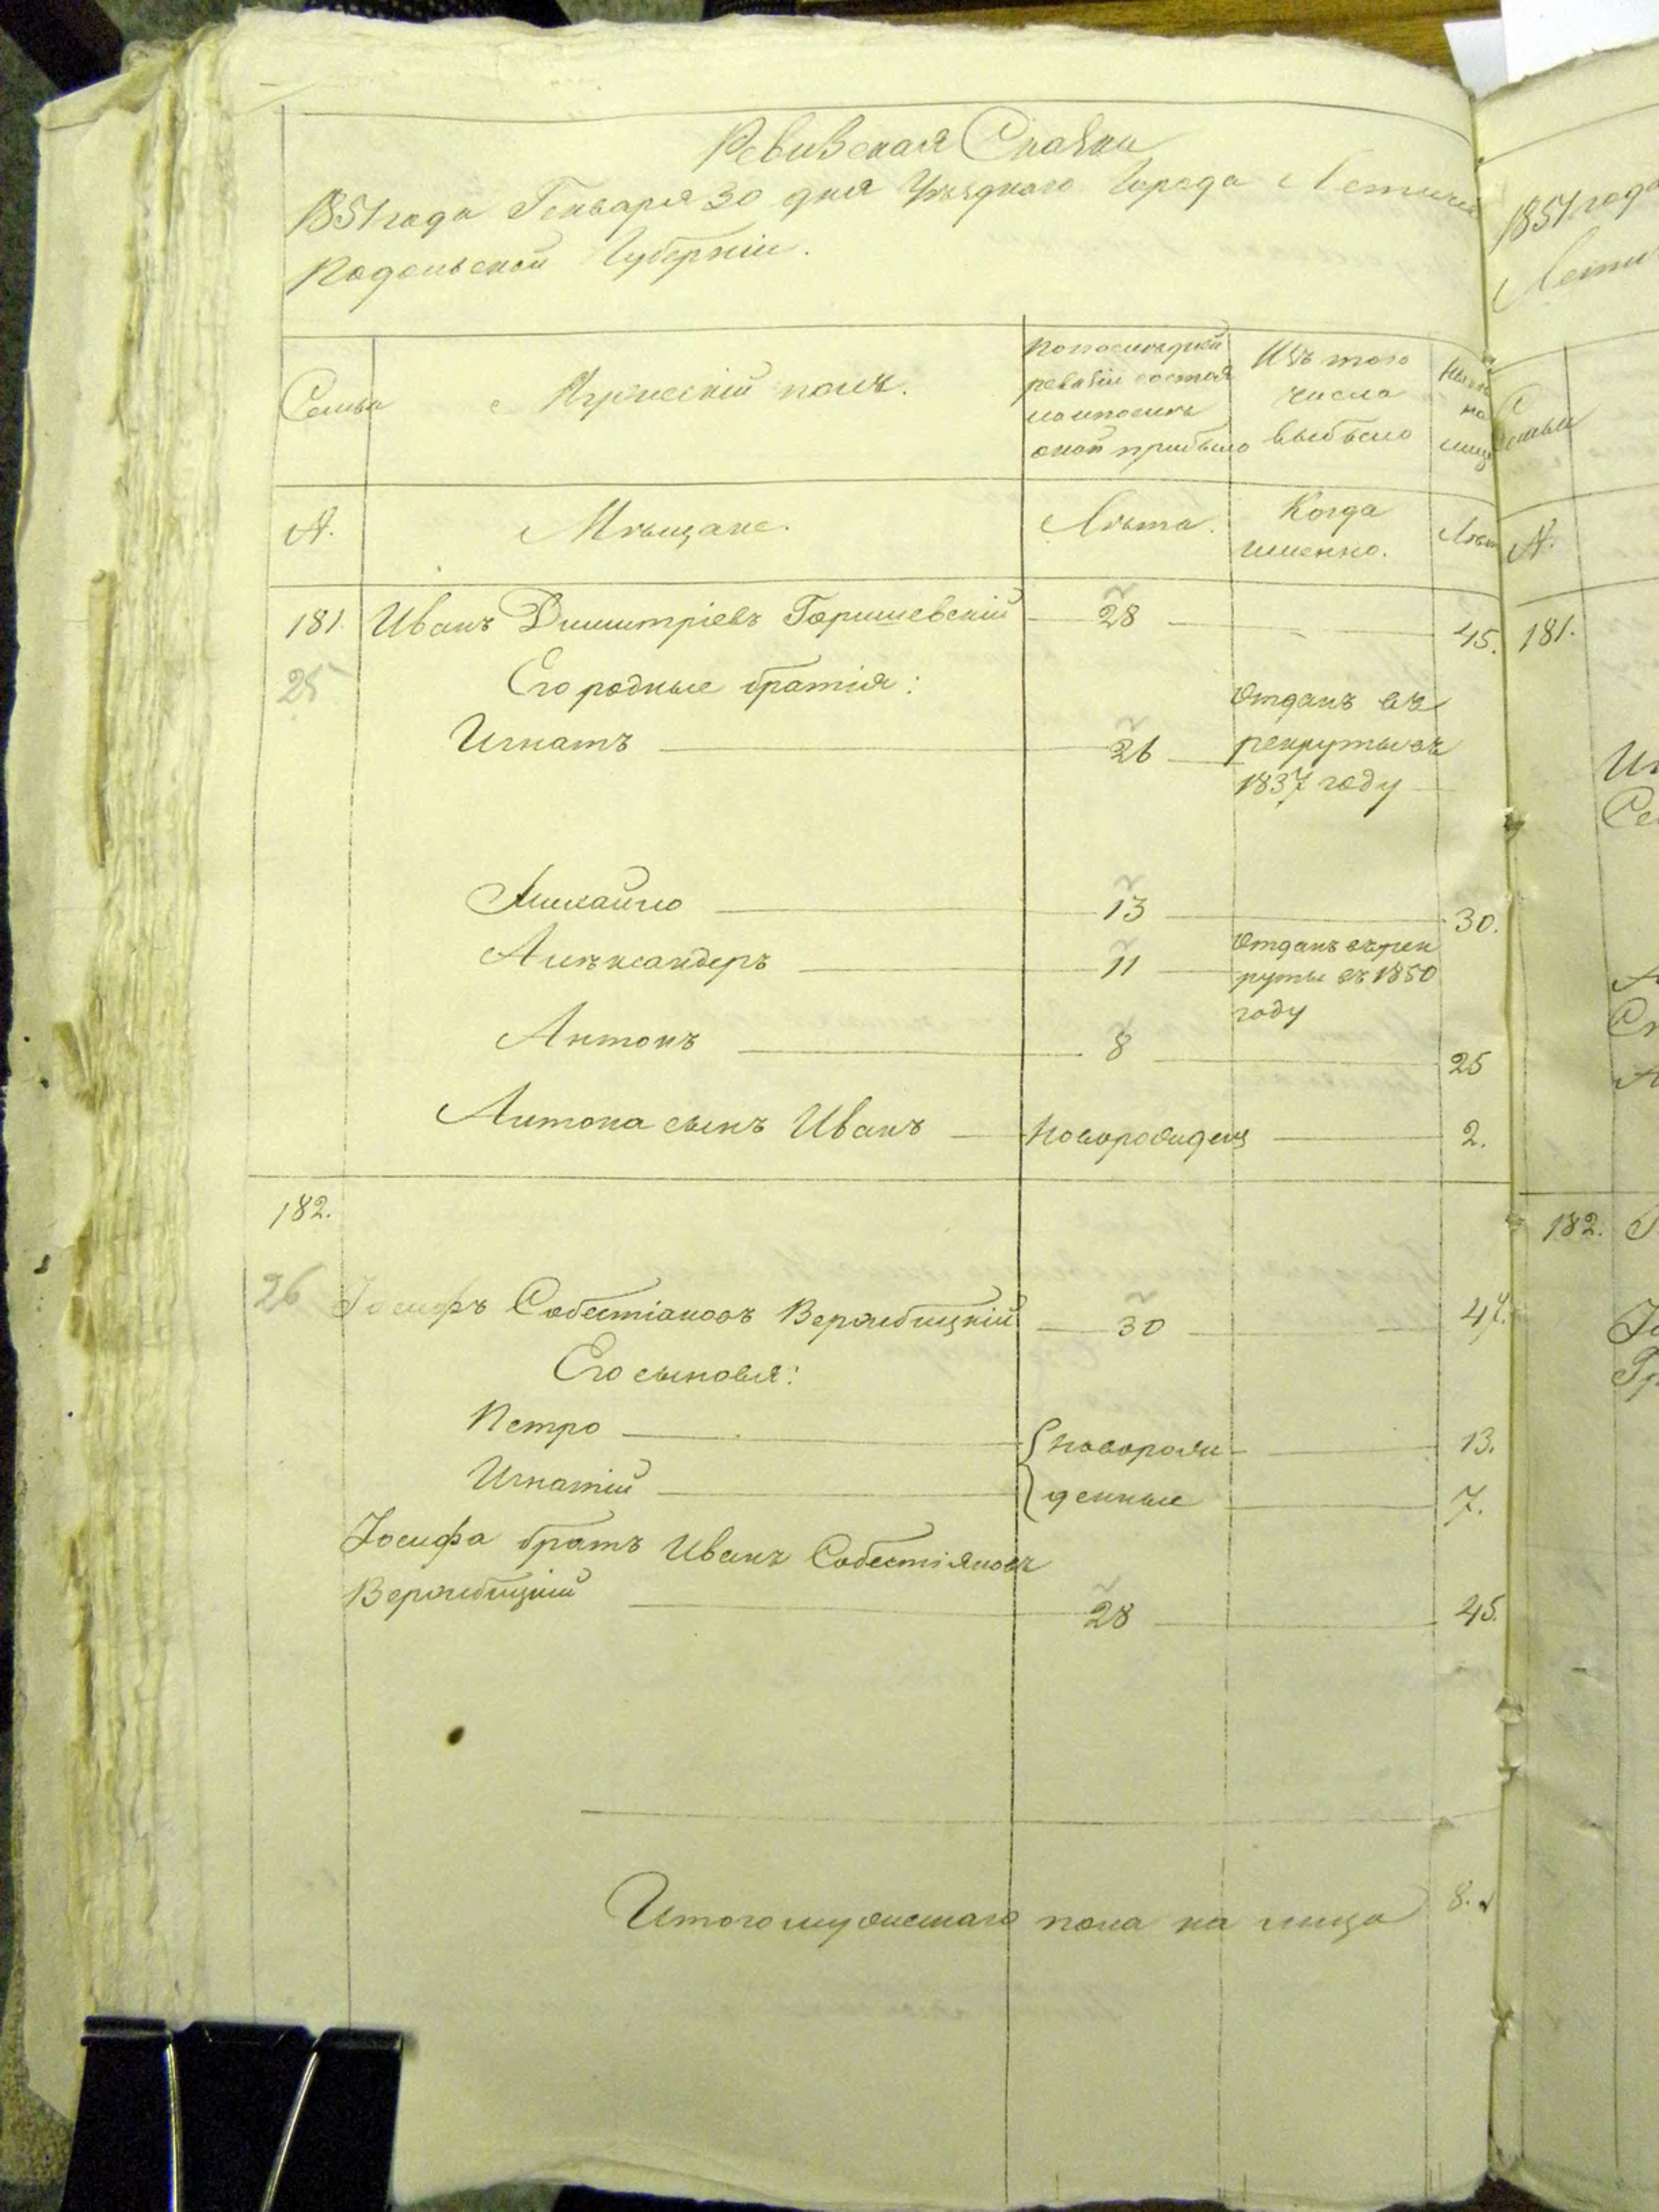 Ревизская Сказка
1851 года Генваря 30 дня Уѣзднаго Города Летичева
Подольской Губерніи.
Семьи
Мужескій полъ.
По последней
ревизіи состоя
ло и после
оной прибыло
Изъ того
числа
выбыло
Ныне
на
лицо
№.
Мѣщане.
Лѣта.
Когда
именно.
Лѣта
181. Иванъ Димитріевъ Горишевскій 28 45.
25 Его родные братія:
Игнатъ 26 Отданъ въ
рекруты въ
1837 году
Михайло 13 30.
Алѣксандеръ 11 Отданъ въ рек
руты въ 1850
году
Антонъ 8 25
Антона сынъ Иванъ Новорожденъ 2.
182.
26 Іосифъ Собестіановъ Вержбицкій 30 47.
Его сыновья:
Петро новорож 13.
Игнатій денные 7.
Іосифа братъ Иванъ Собестіяновъ
Вержбицкій 28 45.
Итого мужескаго пола на лицо 8.
1851 года
Лети
Семьи
№.
181.
182.